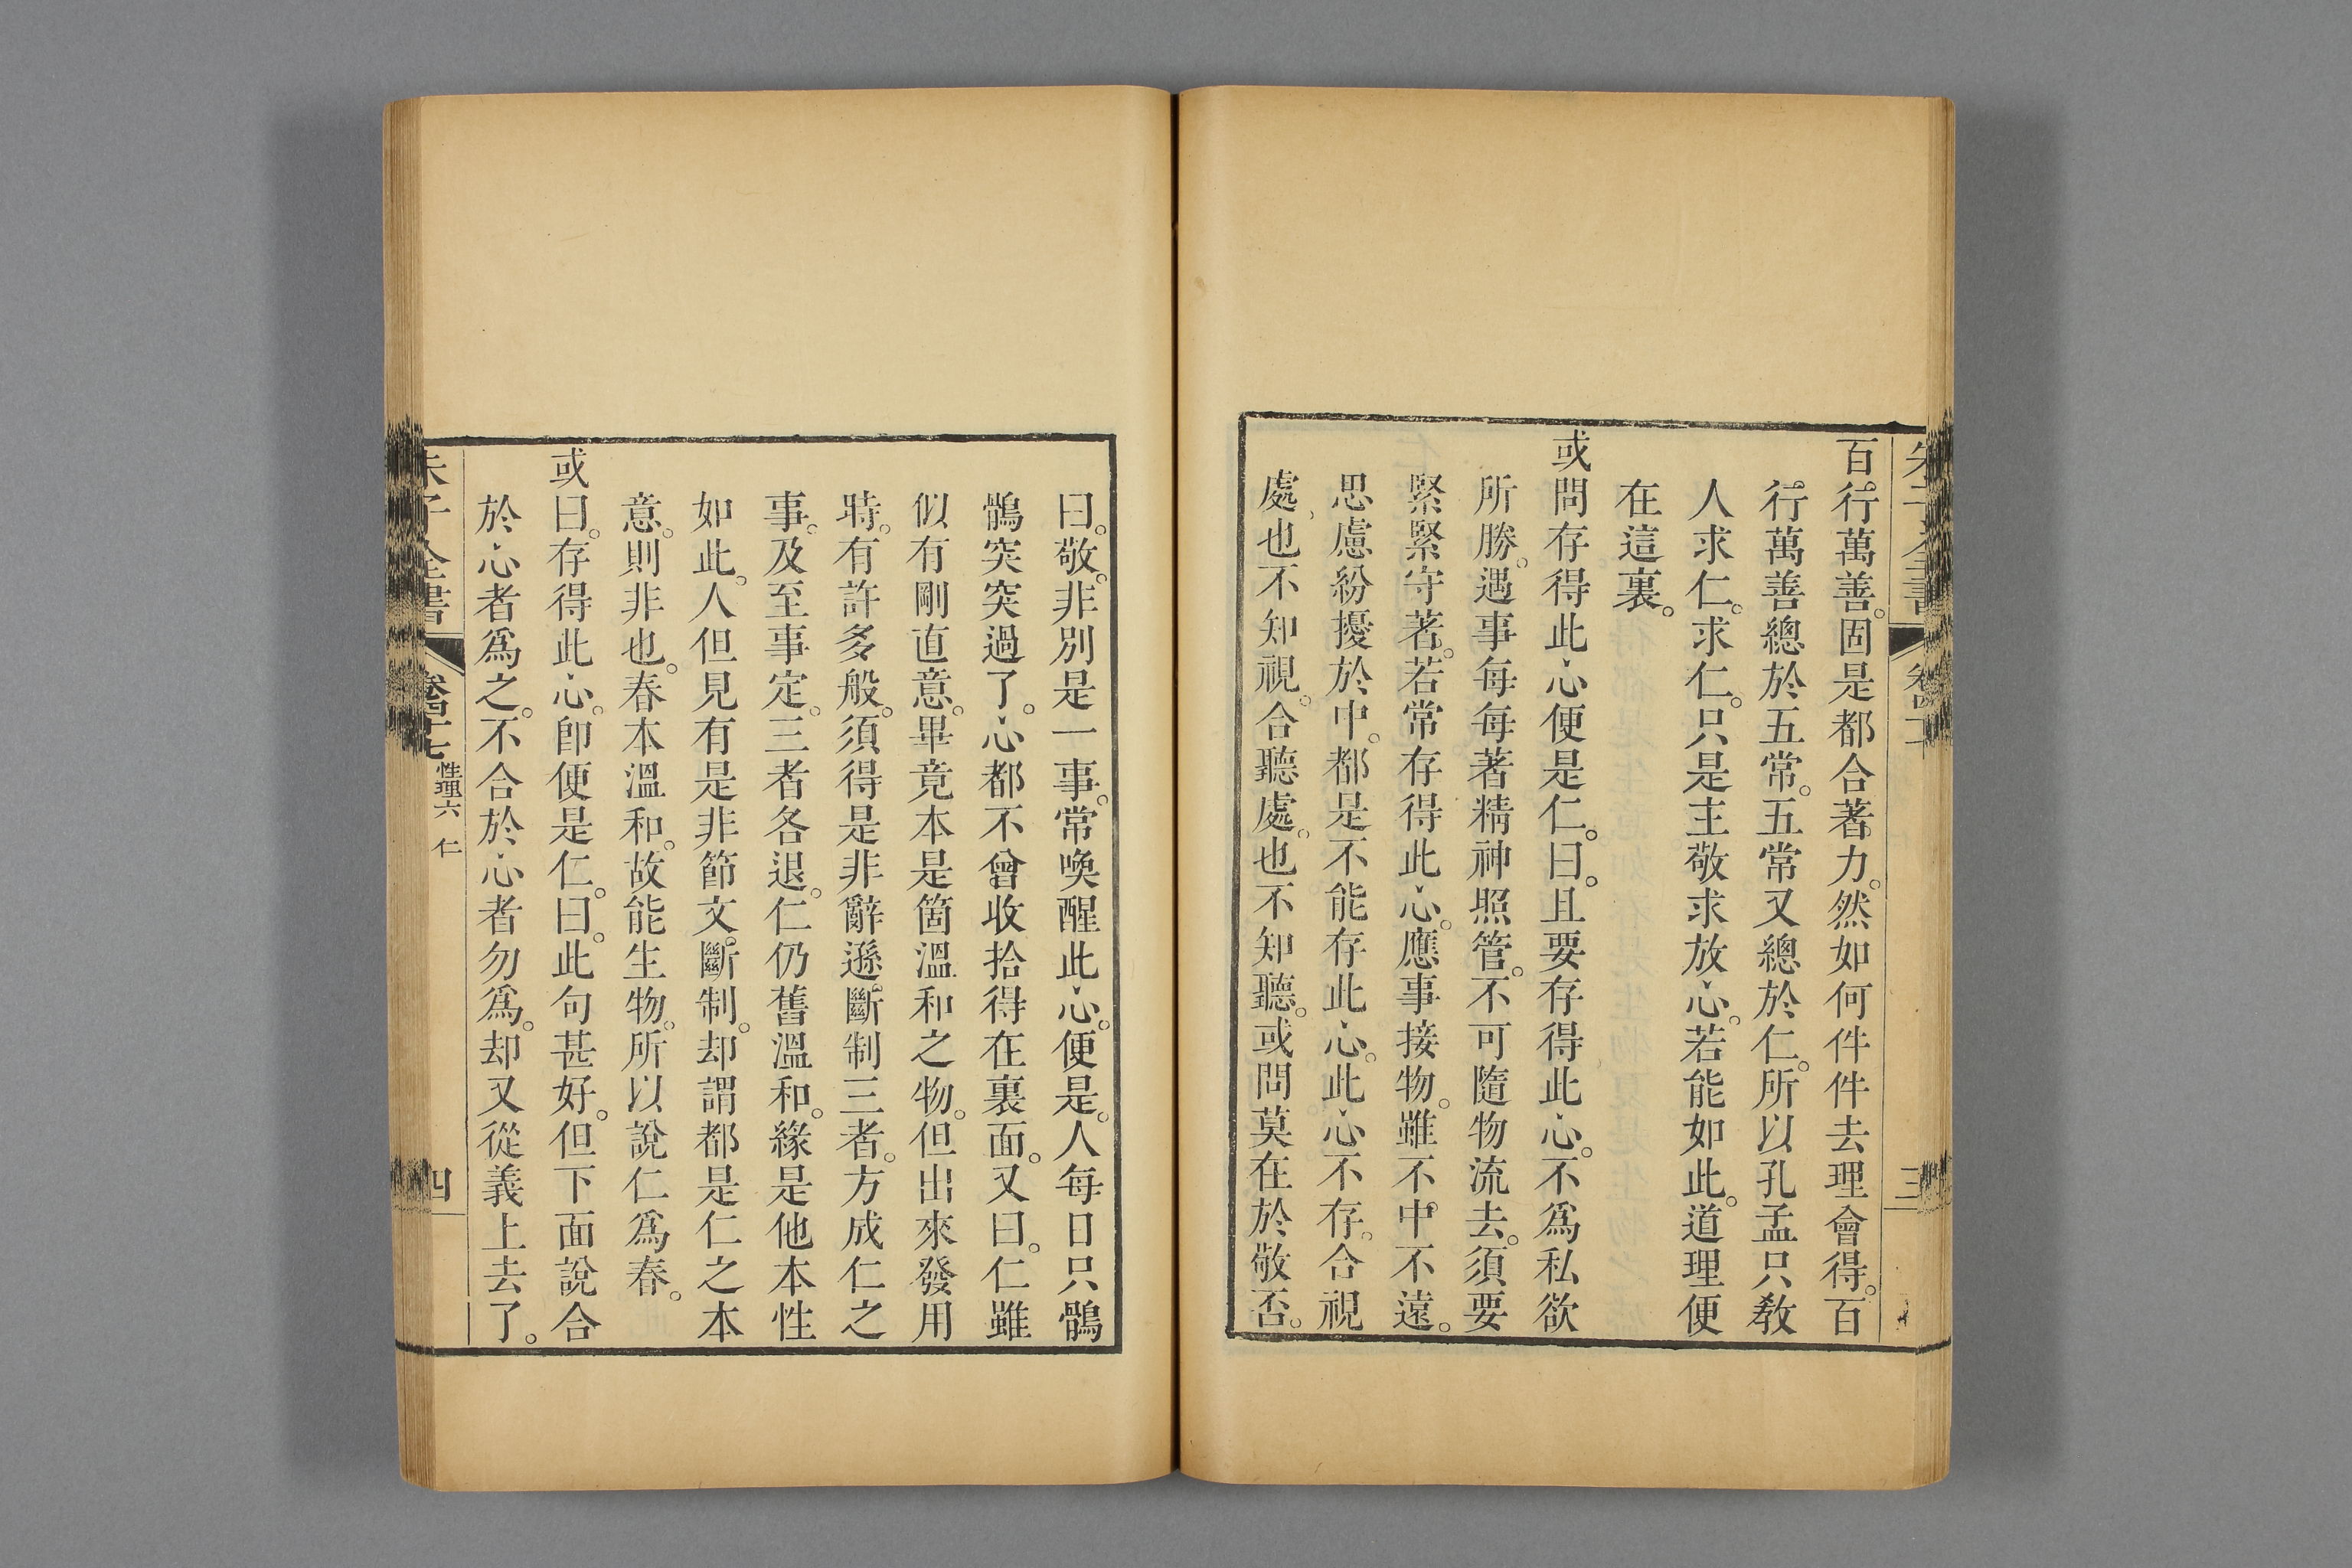 百行萬善。固是都合著力。然如何件件去理會得。百
行萬善總於五常。五常又總於仁。所以孔孟只教
人求仁。求仁。只是主敬求放心。若能如此。道理便
在這裏。
或問存得此心便是仁。曰。且要存得此心。不爲私欲
所勝。遇事每每著精神照管。不可隨物流去。須要
緊緊守著。若常存得此心。應事接物。雖不中不遠。
思慮紛擾於中。都是不能存此心。此心不存。合視
處、也不知視。合聽處。也不知聽。或問莫在於敬否。
曰。敬。非別是一事。常喚醒此心。便是。人每日只鶻
鶻突突過了。心都不曾收拾得在裏面。又曰。仁雖
似有剛直意。畢竟本是箇溫和之物。但出來發用
時。有許多般。須得是非辭遜。斷制三者。方成仁之
事。及至事定。三者各退。仁仍舊溫和。緣是他本性
如此。人但見有是非節文。斷制。却謂都是仁之本
意。則非也。春本溫和。故能生物。所以說仁爲春。
或曰。存得此心。卽便是仁。曰。此句甚好。但下面說合
於心者爲之。不合於心者勿爲。却又從義上去了。
朱子全書
卷四十七
性理六 仁
四